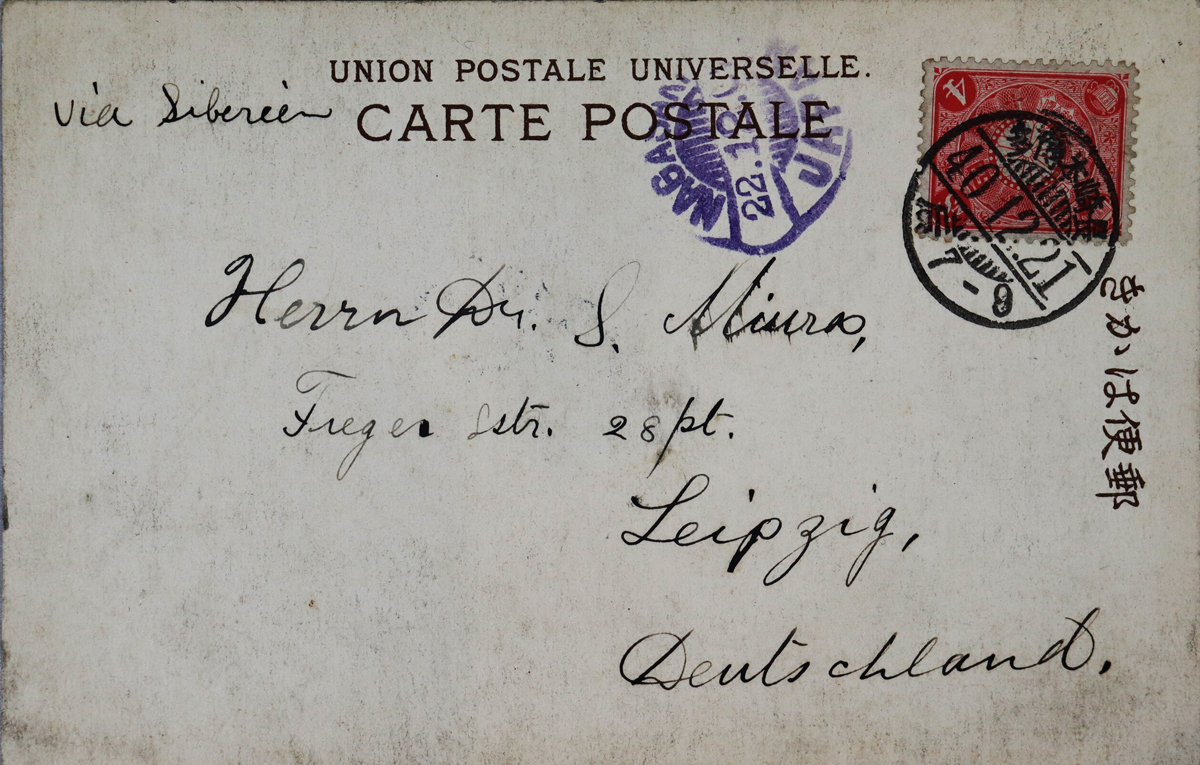 UNION POSTALE UNIVERSELLE.
CARTE POSTALE
via Siberien
NAGASAKI
22.12.07
JAPAN
4
40.12.21
7-8
きかは便郵
Herrn Dr. S. Miura,
str. 28 pt.
Leipzig,
Deutschland.